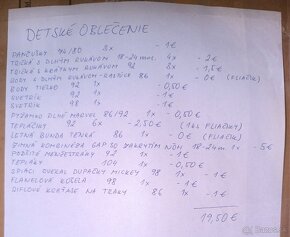 DETSKÉ OBLEČENIE
PANČUŠKY 74/80 3x -1€
TRIČKÁ S DLHÝM RUKÁVOM 18-24mes. 4x - 2€
TRIČKÁ S KRÁTKYM RUKÁVOM 92 3x - 1,5€
BODY S DLHÝM RUKÁVOM 86 1x - 0€ (FLIAČIK)
BODY TIELKO 92 1x - 0,50€
SVETRÍK 92 1x - 1€
SVETRÍK 98 1x - 1€
PYŽAMKO DLHÉ MARVEL 86/92 1x - 0,50€
TEPLÁČIKY 92 6x - 2,50€ (FLIAČIKY)
LETNÁ BUNDA TENKÁ 86 1x - 0€ (FLIAČIK)
ZIMNÁ KOMBINÉZA GAP SO ZAKRYTÍM NÔH 18-24m 1x - 5€
92 1x - 1€
TEPLÁKY 104 1x - 0,50€
SPIACI OVERAL DUPAČKY MICKEY 98 1x - 1€
FLANELOVÁ KOŠEĽA 98 1x - 1€
RIFĽOVÉ KRAŤASE NA TRAKY 86 1x - 1€
19,50 €